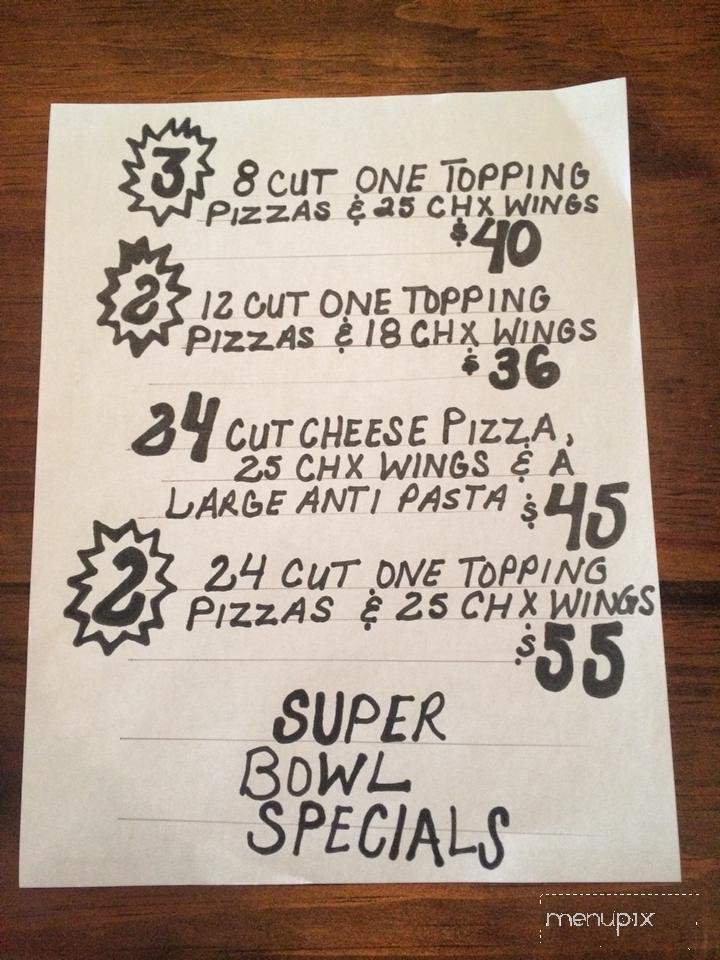 3 8 CUT ONE TOPPING
PIZZAS & 25 CHX WINGS
$40
2 12 CUT ONE TOPPING
PIZZAS & 18 CHX WINGS
$36
24 CUT CHEESE PIZZA,
25 CHX WINGS & A
LARGE ANTI PASTA $45
2 24 CUT ONE TOPPING
PIZZAS & 25 CHX WINGS
$55
SUPER
BOWL
SPECIALS
menupix